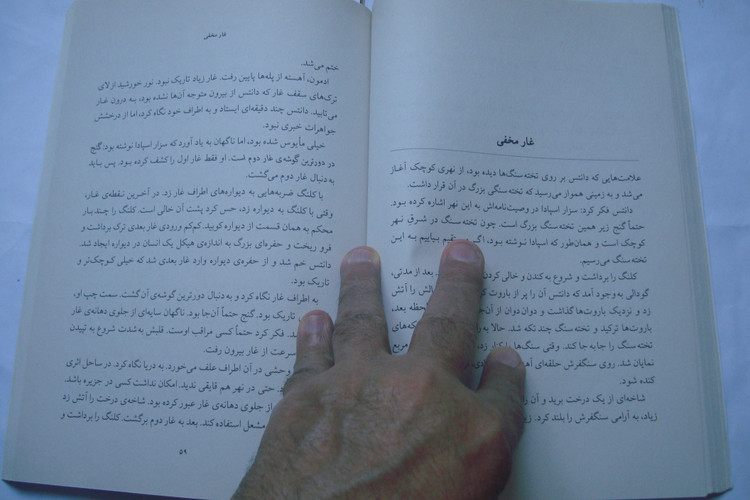 غار مخفی
علامت‌هایی که دانتس بر روی تخته‌سنگ‌ها دیده بود، از نهری کوچک آغاز
می‌شد و به زمینی هموار می‌رسید که تخته‌سنگی بزرگ در آن قرار داشت.
دانتس فکر کرد: سزار اسپادا در وصیت‌نامه‌اش به این نهر اشاره کرده بود.
حتماً گنج زیر همین تخته‌سنگ بزرگ است. چون تخته‌سنگ در شرق نهر
کوچک است و همان‌طور که اسپادا نوشته بود، اگر مستقیم بیاییم به این
تخته‌سنگ می‌رسیم.
کلنگ را برداشت و شروع به کندن و خالی کردن بعد از مدتی،
گودالی به وجود آمد که دانتس آن را پر از باروت کرد آتش
زد و نزدیک باروت‌ها گذاشت و دوان‌دوان از آن‌جا لحظه بعد،
باروت‌ها ترکید و تخته‌سنگ چند تکه شد. حالا به را
تخته‌سنگ را جابه‌جا کند. وقتی سنگ‌ها را کنار زد، مربع
نمایان شد. روی سنگفرش حلقه‌ای
کنده شود.
شاخه‌ای از یک درخت برید و آن را
زیاد، به آرامی سنگفرش را بلند کرد.
غار مخفی
ختم می‌شد.
ادمون، آهسته از پله‌ها پایین رفت. غار زیاد تاریک نبود. نور خورشید از لای
ترک‌های سقف غار که دانتس از بیرون متوجه آن‌ها نشده بود، به درون غار
می‌تابید. دانتس چند دقیقه‌ای ایستاد و به اطراف خود نگاه کرد، اما از درخشش
جواهرات خبری نبود.
خیلی مأیوس شده بود، اما ناگهان به یاد آورد که سزار اسپادا نوشته بود: گنج
در دورترین گوشه‌ی غار دوم است. او فقط غار اول را کشف کرده بود. پس باید
به دنبال غار دوم می‌گشت.
با کلنگ ضربه‌هایی به دیواره‌های اطراف غار زد. در آخرین نقطه‌ی غار،
وقتی با کلنگ به دیواره زد، حس کرد پشت آن خالی است. کلنگ را چند بار
محکم به همان قسمت از دیواره کوبید. کم‌کم ورودی غار بعدی ترک برداشت و
فرو ریخت و حفره‌ای بزرگ به اندازه‌ی هیکل یک انسان در دیواره ایجاد شد.
دانتس خم شد و از حفره‌ی دیواره وارد غار بعدی شد که خیلی کوچک‌تر و
تاریک بود.
به اطراف غار نگاه کرد و به دنبال دورترین گوشه‌ی آن گشت. سمت چپ او،
تاریک بود. گنج حتماً آن‌جا بود. ناگهان سایه‌ای از جلوی دهانه‌ی غار
فکر کرد حتماً کسی مراقب اوست. قلبش به‌شدت شروع به تپیدن
سرعت از غار بیرون رفت.
وحشی در آن اطراف علف می‌خورد. به دریا نگاه کرد. در ساحل اثری
حتی در نهر هم قایقی ندید. امکان نداشت کسی در جزیره باشد.
از جلوی دهانه‌ی غار عبور کرده بود. شاخه‌ی درخت را آتش زد
مشعل استفاده کند. بعد به غار دوم برگشت. کلنگ را برداشت و
۵۹